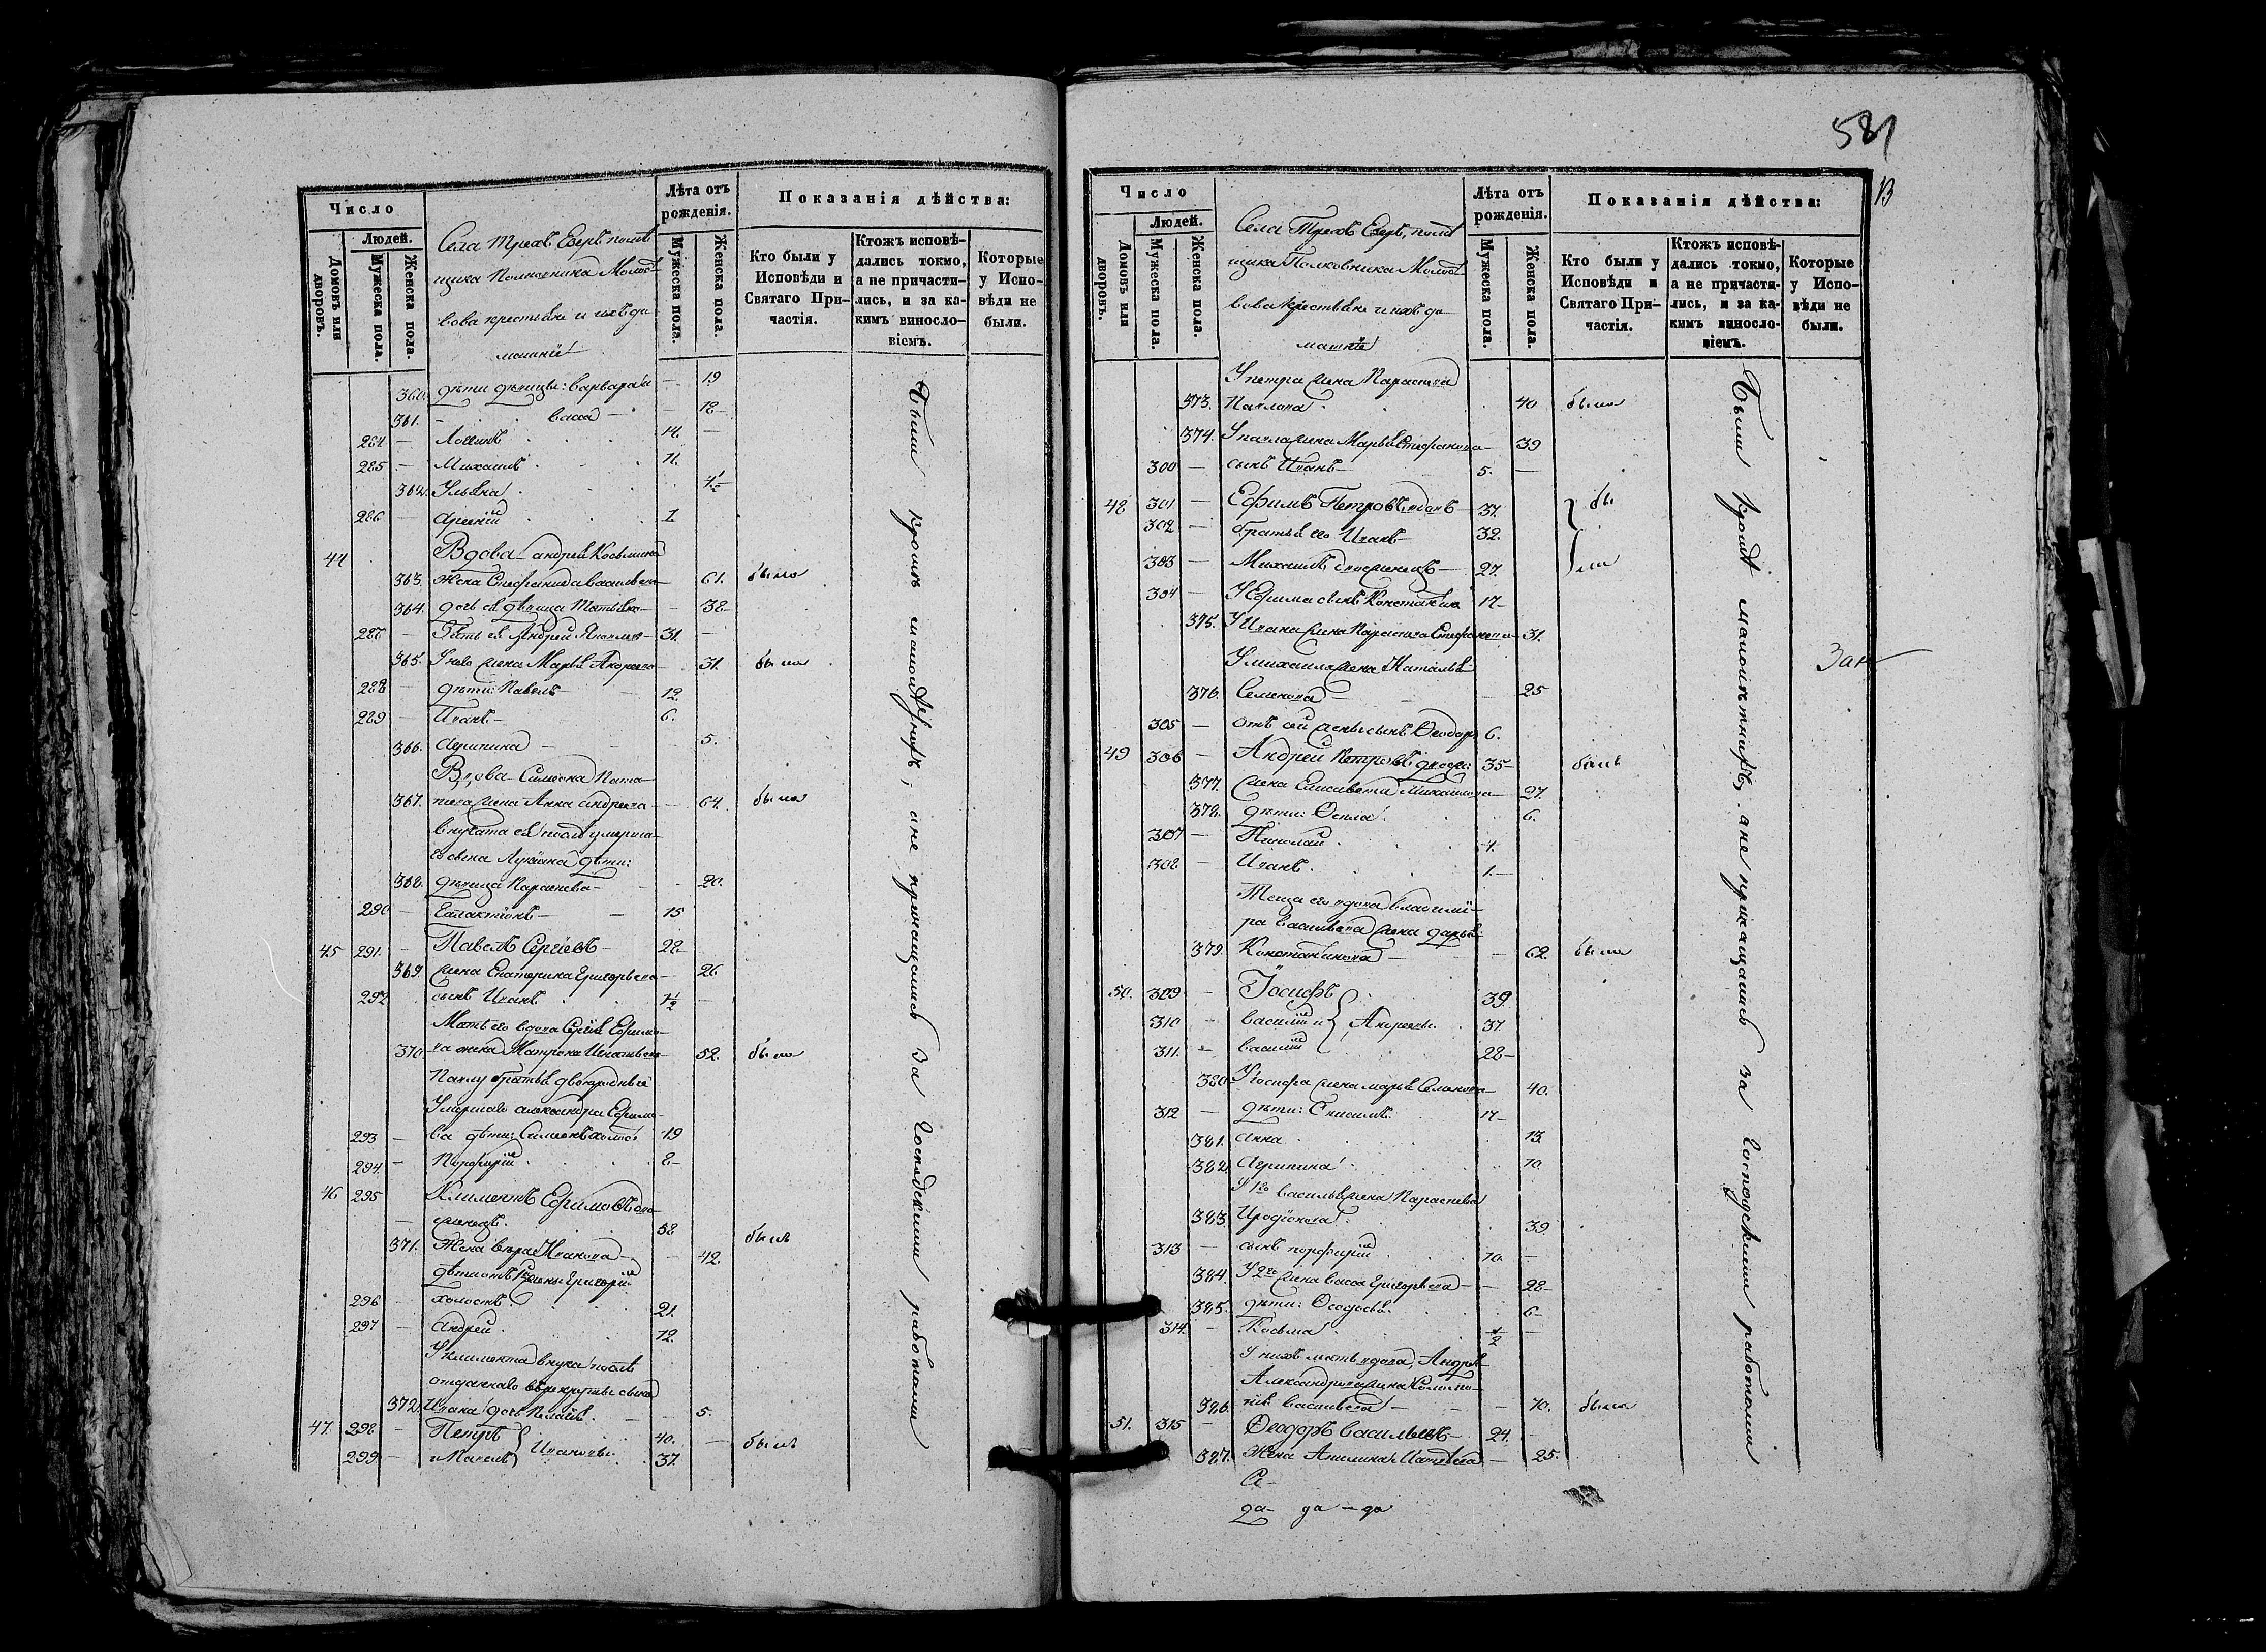 Число
Людей.
Домовъ или дворовъ.
Мужеска пола.
Женска пола.
Села Трехъ Езеръ помѣ-
щика Полковника Молос-
вова крестьяне и ихъ до-
машніи
Лѣта отъ рожденія.
Мужеска пола.
Женска пола.
Показанія дѣйства:
Кто были у Исповѣди и Святаго При-частія.
Ктожъ исповѣ-дались токмо, а не причасти-лись, и за ка-кимъ винosло-віемъ.
Которые у Испо-вѣди не были.
360. дѣти дѣвицы: Варвара 19
361. Васса 18
284 14
285 Михаилъ 11
362. Ульяна 4½
286 Арсеній 1
44 Вдова Андрея Космина
363. жена Стефанида Васильева 61. была
364. дочь ея дѣвица Татьяна 38
287 Зять ея Андрей Яковлевъ 31.
365. У него жена Марья Андреева 31. была
288 дѣти: Павелъ 12.
289 Иванъ 6.
366. Агрипина 5.
Вдова Симеона Пота-
367. пова жена Анна Андреева 64. была
внучата ея после умерша-
го сына Лукіана дѣти:
368. дѣвица Параскева 20.
290 Галактіонъ 15
45 291. Павелъ Сергіевъ 28
369. жена Екатерина Григорьева 26
292 сынъ Иванъ 1½
Мать его вдова Сергія Ефимо-
370. ва жена Матрона Игнатьева 52. была
Павлу братья двоюродныя
Умершаго Александра Ефимо-
293 ва дѣти: Симеонъ холостъ 19
294. Порфирій 8
46 295 Климентъ Ефимовъ дво-
еженецъ. 58 былъ
371. Жена Вѣра Иванова 42.
дѣти отъ 1й жены Григорій
296 холостъ. 21.
297 Андрей 12.
У Климента внука после
отданнаго въ рекруты сына
372. Ивана дочь Пелагія 5.
47. 298 Петръ } Ивановы. 40. былъ
299 и Павелъ 37.
Были кромѣ малолѣтнихъ, а не причащались за господскими работами
581
13
Число
Людей.
Домовъ или дворовъ.
Мужеска пола.
Женска пола.
Села Трехъ Езеръ, помѣ-
щика Полковника Молос-
вова крестьяне и ихъ до-
машніи
Лѣта отъ рожденія.
Мужеска пола.
Женска пола.
Показанія дѣйства:
Кто были у Исповѣди и Святаго При-частія.
Ктожъ исповѣ-дались токмо, а не причасти-лись, и за ка-кимъ винословіемъ.
Которые у Испо-вѣди не были.
У Петра жена Параскева
373. Павлова 40 была
374. У Павла жена Марья Стефанова 39
300 сынъ Иванъ 5.
48 301 Ефимъ Петровъ вдовъ 37. бы
302 братья его Иванъ 32.
303 Михаилъ двоеженецъ 27. ли
304 У Ефима сынъ Константинъ 17
375. У Ивана жена Параскева Стефанова 31.
У Михаила жена Наталья
376. Семенова 25
305 отъ сей жены сынъ Ѳеодоръ 6.
49 306 Андрей Петровъ 35 былъ
377. жена Елисавета Михайлова 27.
378. дѣти: Ѳекла 6.
307 Николай 4.
308 Иванъ 1.
Теща его вдова Владими-
ра Васильева жена Дарья
379. Константинова 62. была
50. 309 Іосифъ 39.
310 Василій и } Андреевы. 37.
311. Василій 28
380. У Іосифа жена Марья Семенова 40.
312 дѣти: 17
381. Анна 13.
382. Агрипина 10.
У 1го Василья жена Параскева
383. Иродіонова 39.
313 сынъ Порфирій 10.
384. У 2го жена Васса Григорьева 28
385. дѣти: Ѳеодосья 6
314. Косьма ½
У нихъ мать вдова, Андрея
Александрова жена Соломо-
386. нія Васильева 70. была
51. 315 Ѳеодоръ Васильевъ 24.
387. Жена Акилина 25.
да да да
Были кромѣ малолѣтнихъ, а не причащались за господскими работами
Зан